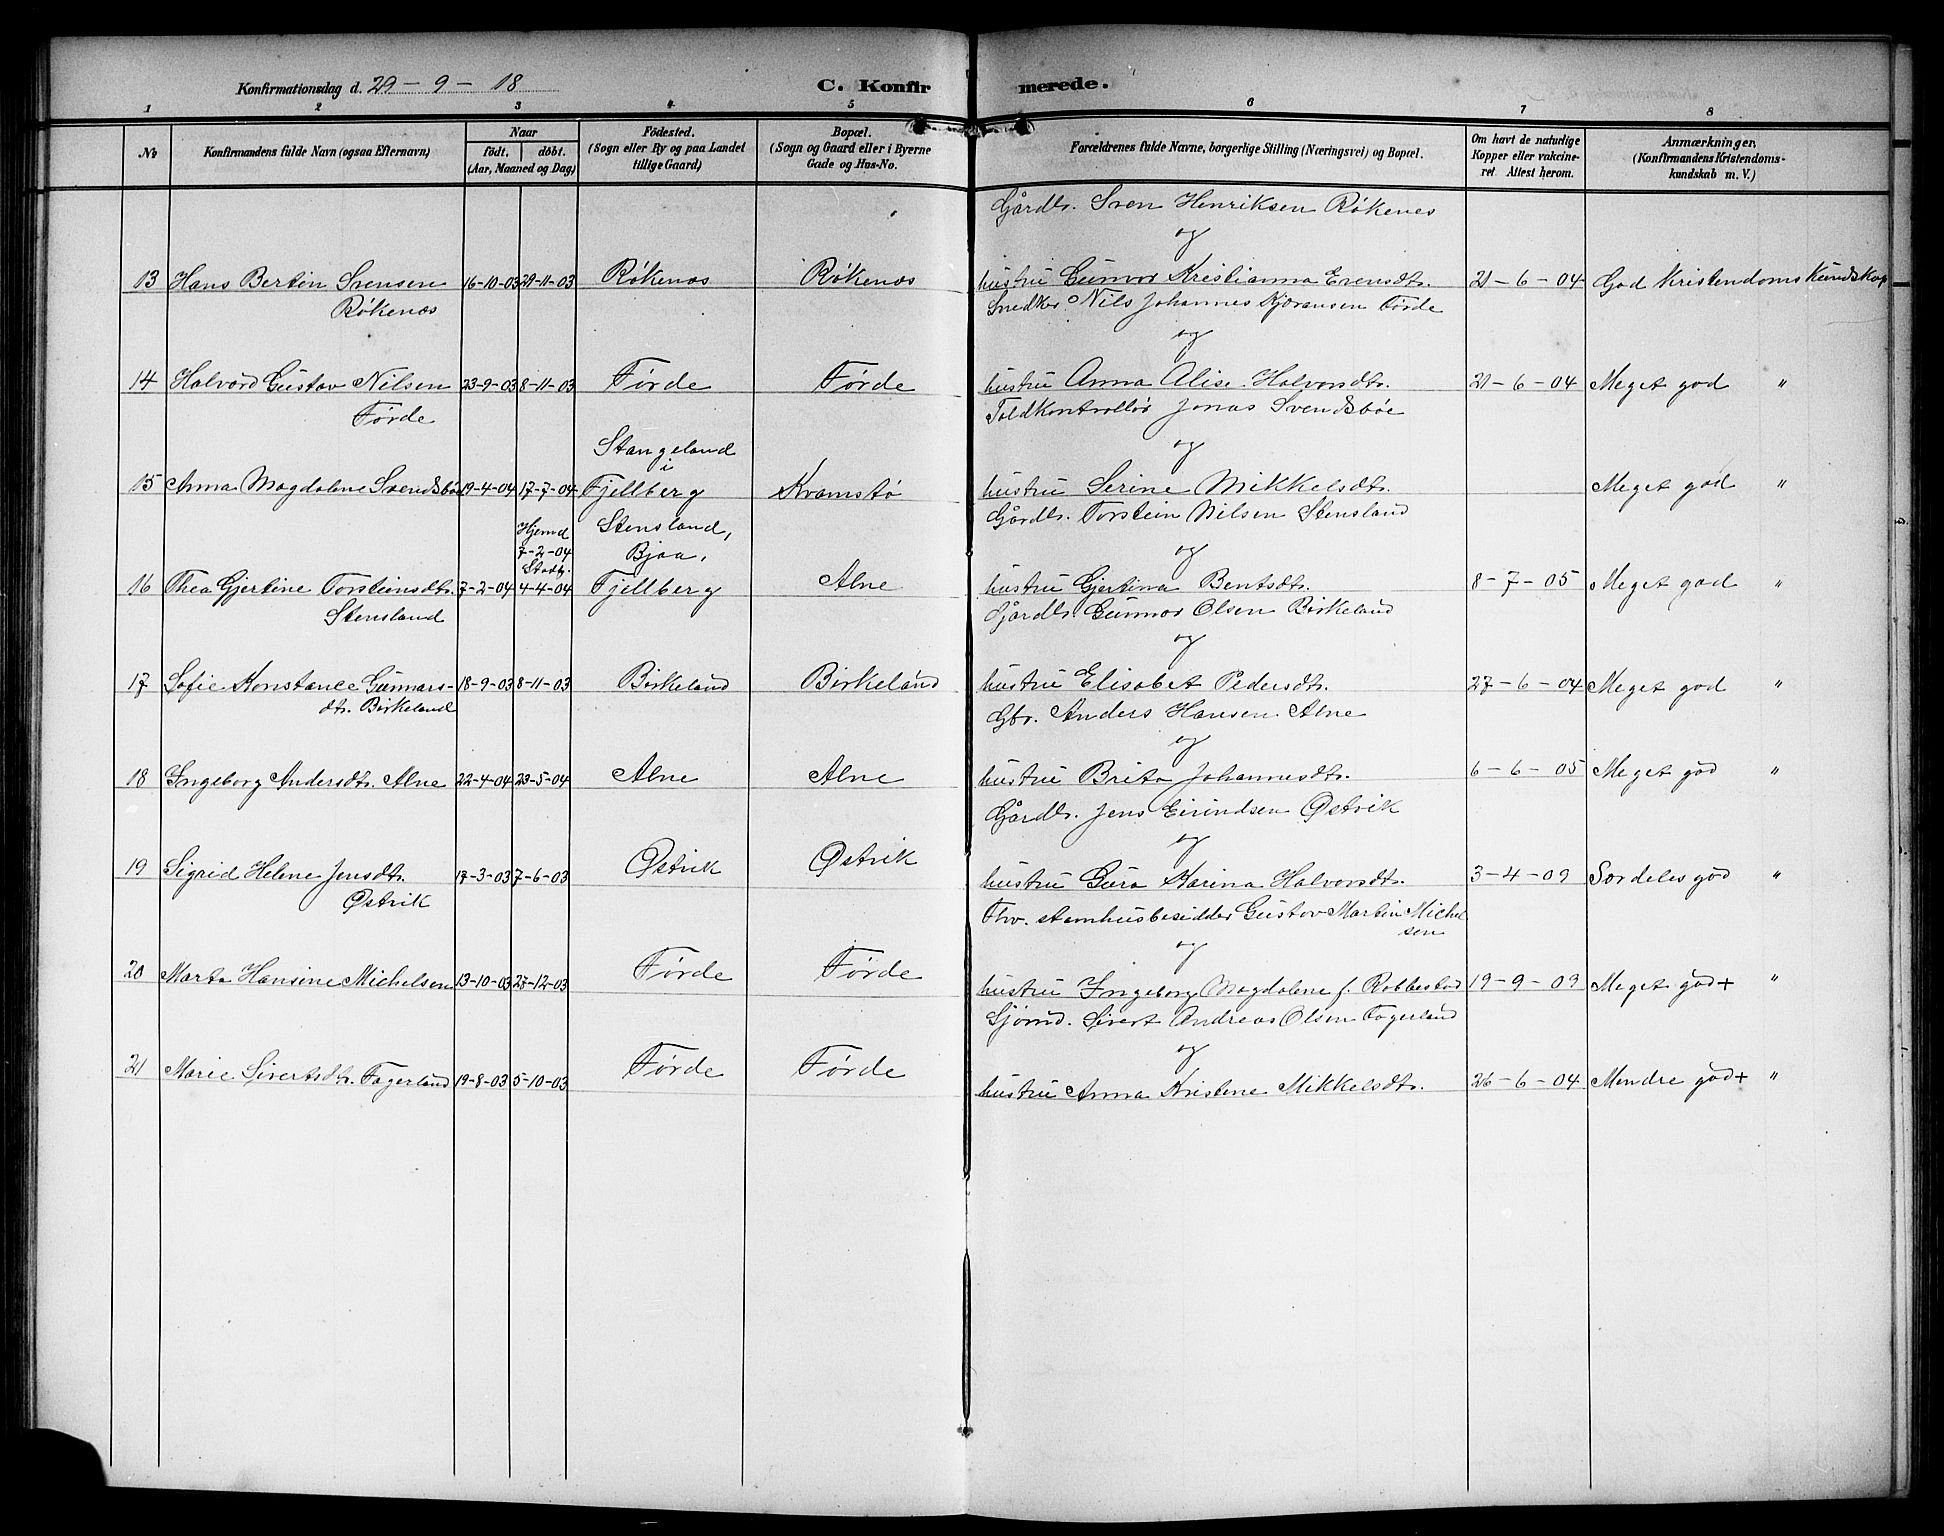 Konfirmationsdag d. 29 - 9 - 18 C. Konfirmerede.
1 2 3 4 5 6 7 8
No Konfirmandens fulde Navn (ogsaa Efternavn) Naar født. døbt. (Aar, Maaned og Dag) Födested. (Sogn eller By og paa Landet tillige Gaard) Bopæl. (Sogn og Gaard eller i Byerne Gade og Hus-No. Forældrenes fulde Navne, borgerlige Stilling (Næringsvei) og Bopæl. Om havt de naturlige Kopper eller vakcineret. Attest herom. Anmærkninger, (Konfirmandens Kristendomskundskab m. V.)
Gårdbr. Sven Henriksen Røkenes
og
13 Hans Bertin Svensen 16-10-03 29-11-03 Røkenæs Røkenæs hustru Gunvor Kristianna Evensdtr. 21-6-04 God Kristendomskundskap
Røkenæs Snedker Nils Johannes Kjøransen Førde
og
14 Halvord Gustav Nilsen 23-9-03 8-11-03 Førde Førde hustru Anna Alise Halvorsdtr. 21-6-04 Meget god "
Førde Toldkontrollør Jonas Svendsbøe
Stangeland
i og
15 Anna Magdalene Svendsbøe 19-4-04 17-7-04 Fjellberg Kvamstø hustru Serine Mikkelsdtr. Meget god "
Hjemd Stensland, Gårdbr. Torstein Nilsen Stensland
7-2-04 Bjoa, og
Stadf.
16 Thea Gjertine Torsteinsdtr. 7-2-04 4-4-04 Fjellberg Alne hustru Gjertina Bentsdtr. 8-7-05 Meget god "
Stensland Gårdbr. Gunnar Olsen Birkeland
og
17 Sofie Konstance Gunnars- 18-9-03 8-11-03 Birkeland Birkeland hustru Elisabet Pedersdtr. 27-6-04 Meget god "
dtr. Birkeland Gbr. Anders Hansen Alne
og
18 Ingeborg Andersdtr. Alne 22-4-04 23-5-04 Alne Alne hustru Brita Johannesdtr. 6-6-05 Meget god "
Gårdbr. Jens Eirindsen Østvik
og
19 Sigrid Helene Jensdtr. 17-3-03 7-6-03 Østvik Østvik hustru Guro Karina Halvorsdtr. 3-4-09 Særdeles god "
Østvik Fhv. stamhusbesidder Gustav Martin Michel
sen
og
20 Marta Hansine Michelsen 13-10-03 27-12-03 Førde Førde hustru Ingeborg Magdalene f. Robbestad 19-9-09 Meget god+ "
Gjømd. Sivert Andreas Olsen Fagerland
og
21 Marie Sivertsdtr. Fagerland 19-8-03 5-10-03 Førde Førde hustru Anna Kristene Mikkelsdtr. 26-6-04 Mendre god+ "